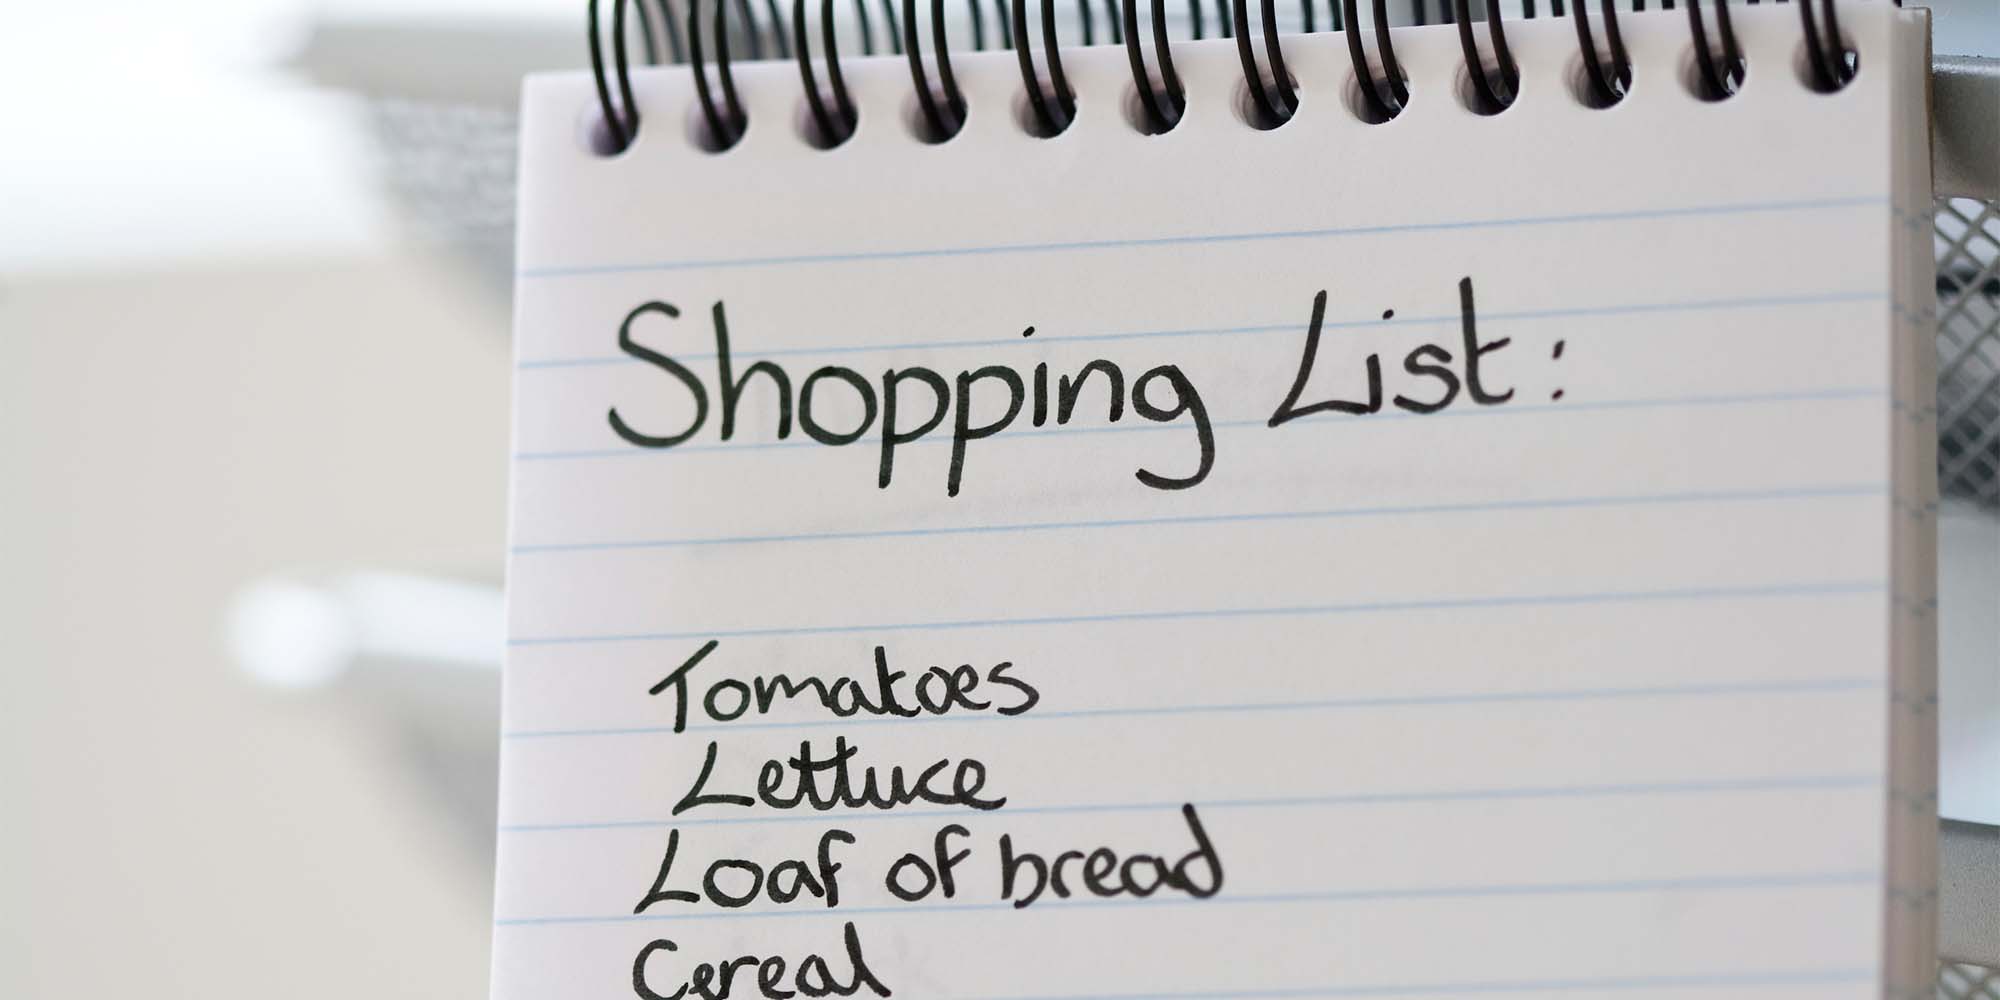 Shopping List:
Tomatoes
Lettuce
Loaf of bread
Cereal